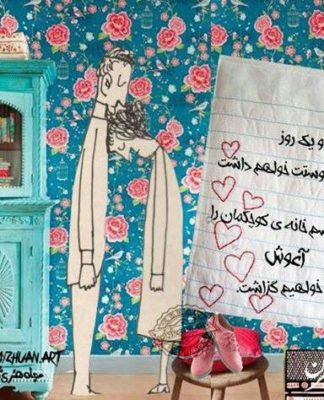 و یک روز
دوستت خواهم داشت
اسم خانه ی کوچکمان را
آغوش
خواهیم گذاشت.
ZHUAN.ART